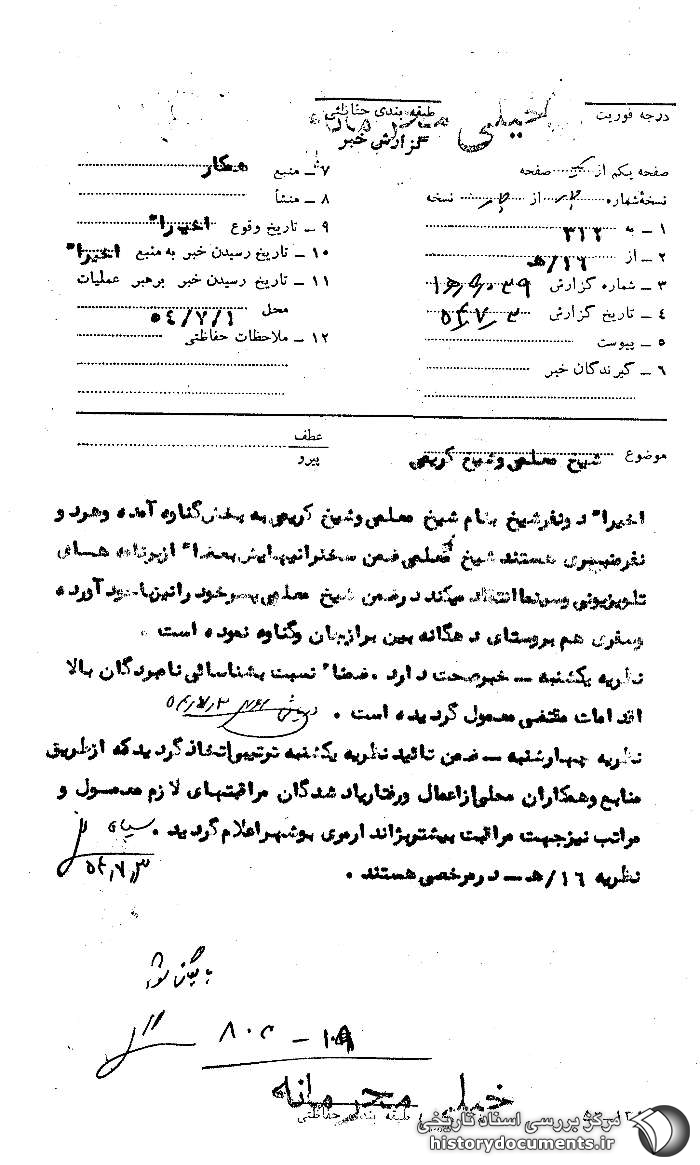 درجه فوریت
طبقه بندی حفاظتی
خیلی محرمانه
گزارش خبر
صفحه یکم از یک صفحه
نسخه شماره از نسخه
۱ ــ به ۳۱۲
۲ ــ از ۱۶/هـ
۳ ــ شماره گزارش
۴ ــ تاریخ گزارش ۵۴٫۷٫۳
۵ ــ پیوست
۶ ــ گیرندگان خبر
۷ ــ منبع همکار
۸ ــ منشأ
۹ ــ تاریخ وقوع اخیرا"
۱۰ ــ تاریخ رسیدن خبر به منبع اخیرا"
۱۱ ــ تاریخ رسیدن خبر برهبر عملیات
محل ۵۴/۷/۱
۱۲ ــ ملاحظات حفاظتی
عطف
پیرو
موضوع شیخ معلمی وشیخ کریمی
اخیرا" دونفرشیخ بنام شیخ معلمی وشیخ کریمی به بخش گناوه آمده وهردو
نفرضبری هستند شیخ معلمی ضمن سخنرانیهایش بعضا" ازبرنامه هسای
تلویزیونی وسینماانتقاد میکند درضمن شیخ معلمی پسرخود رانیزباخود آورده
وسفری هم بروستای دهگانه بین برازجان وگناوه نموده است .
نظریه یکشنبه ــ خبرصحت دارد . ضمنا" نسبت بشناسائی نامبردگان بالا
اقدامات مقتضی معمول گردیده است . ۵۴٫۷٫۳
نظریه چهارشنبه ــ ضمن تائید نظریه یکشنبه ترتیبی اتخاذ گردید که ازطریق
منابع وهمکاران محلی ازاعمال ورفتاریاد شدگان مراقبتهای لازم معمول و
مراتب نیزجهت مراقبت بیشتربژاندارمری بوشهراعلام گردید .
۵۴٫۷٫۳
نظریه ۱۶/هـ ــ درمرخصی هستند .
بایگانی شود
خیلی محرمانه
طبقه بندی حفاظتی
مرکز بررسی اسناد تاریخی
historydocuments.ir